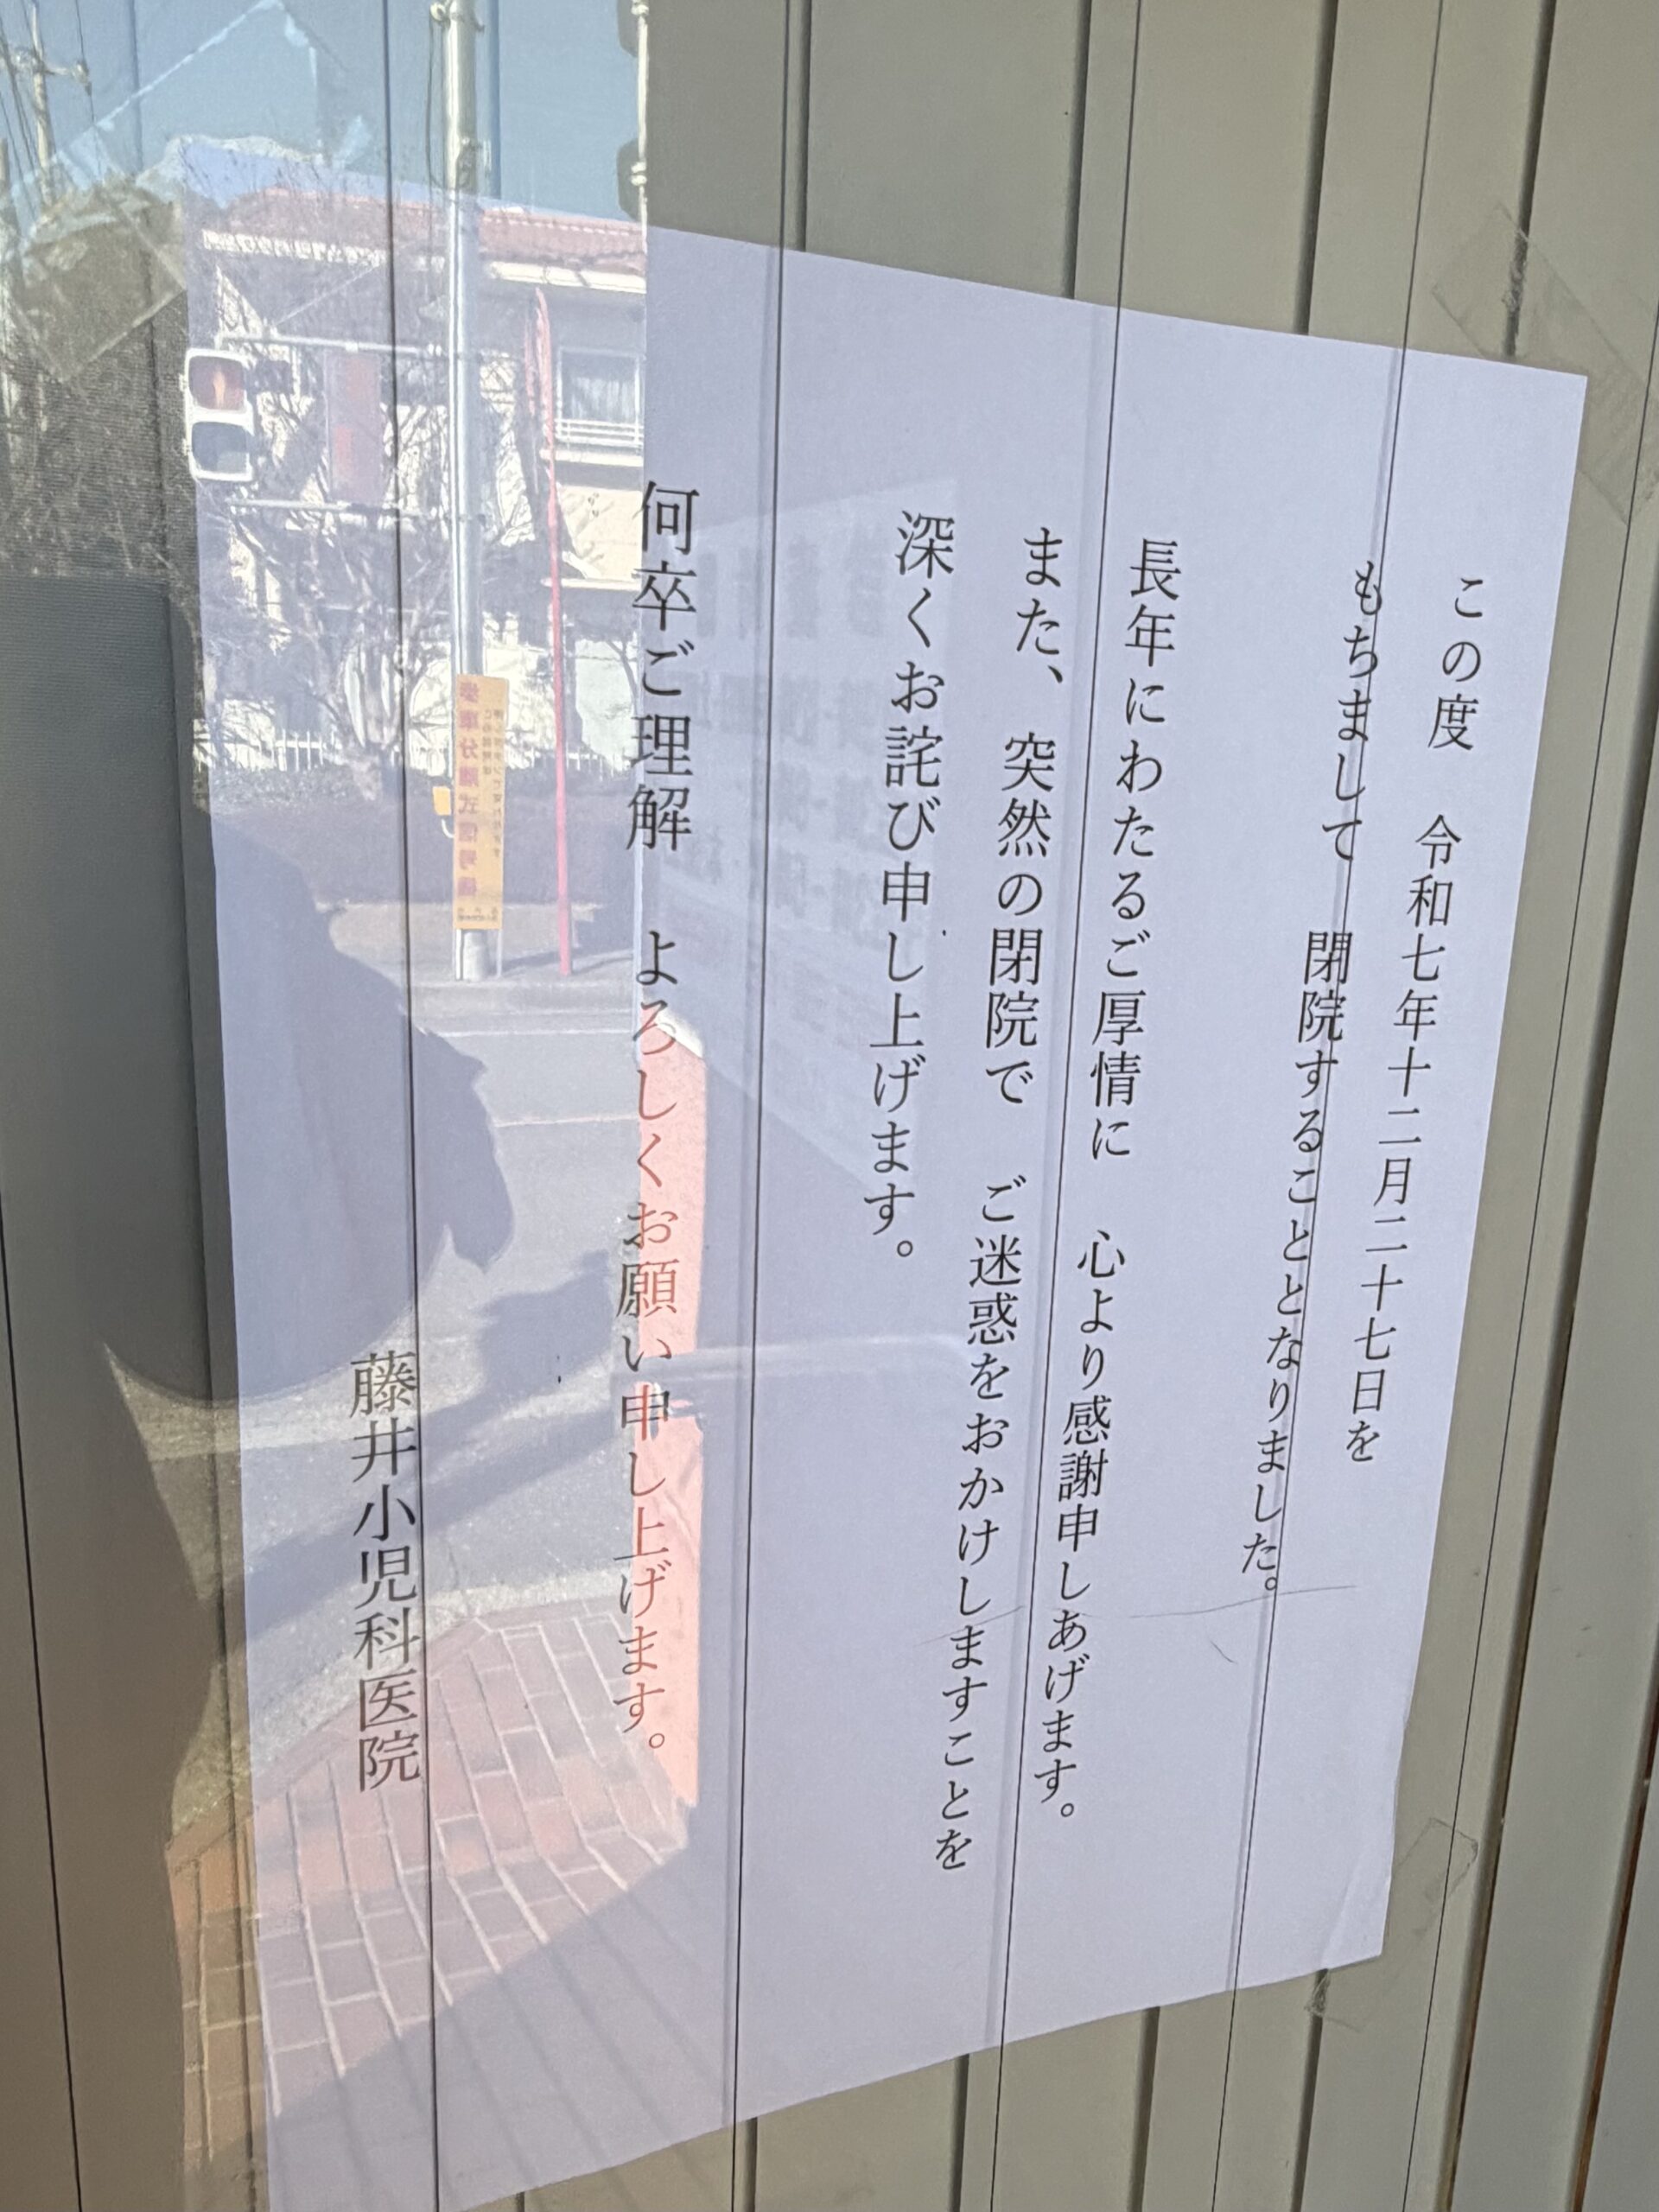 この度　令和七年十二月二十七日を
もちまして　閉院することとなりました。
長年にわたるご厚情に　心より感謝申しあげます。
また、突然の閉院で　ご迷惑をおかけしますことを
深くお詫び申し上げます。
何卒ご理解　よろしくお願い申し上げます。
藤井小児科医院
歩車分離式信号機